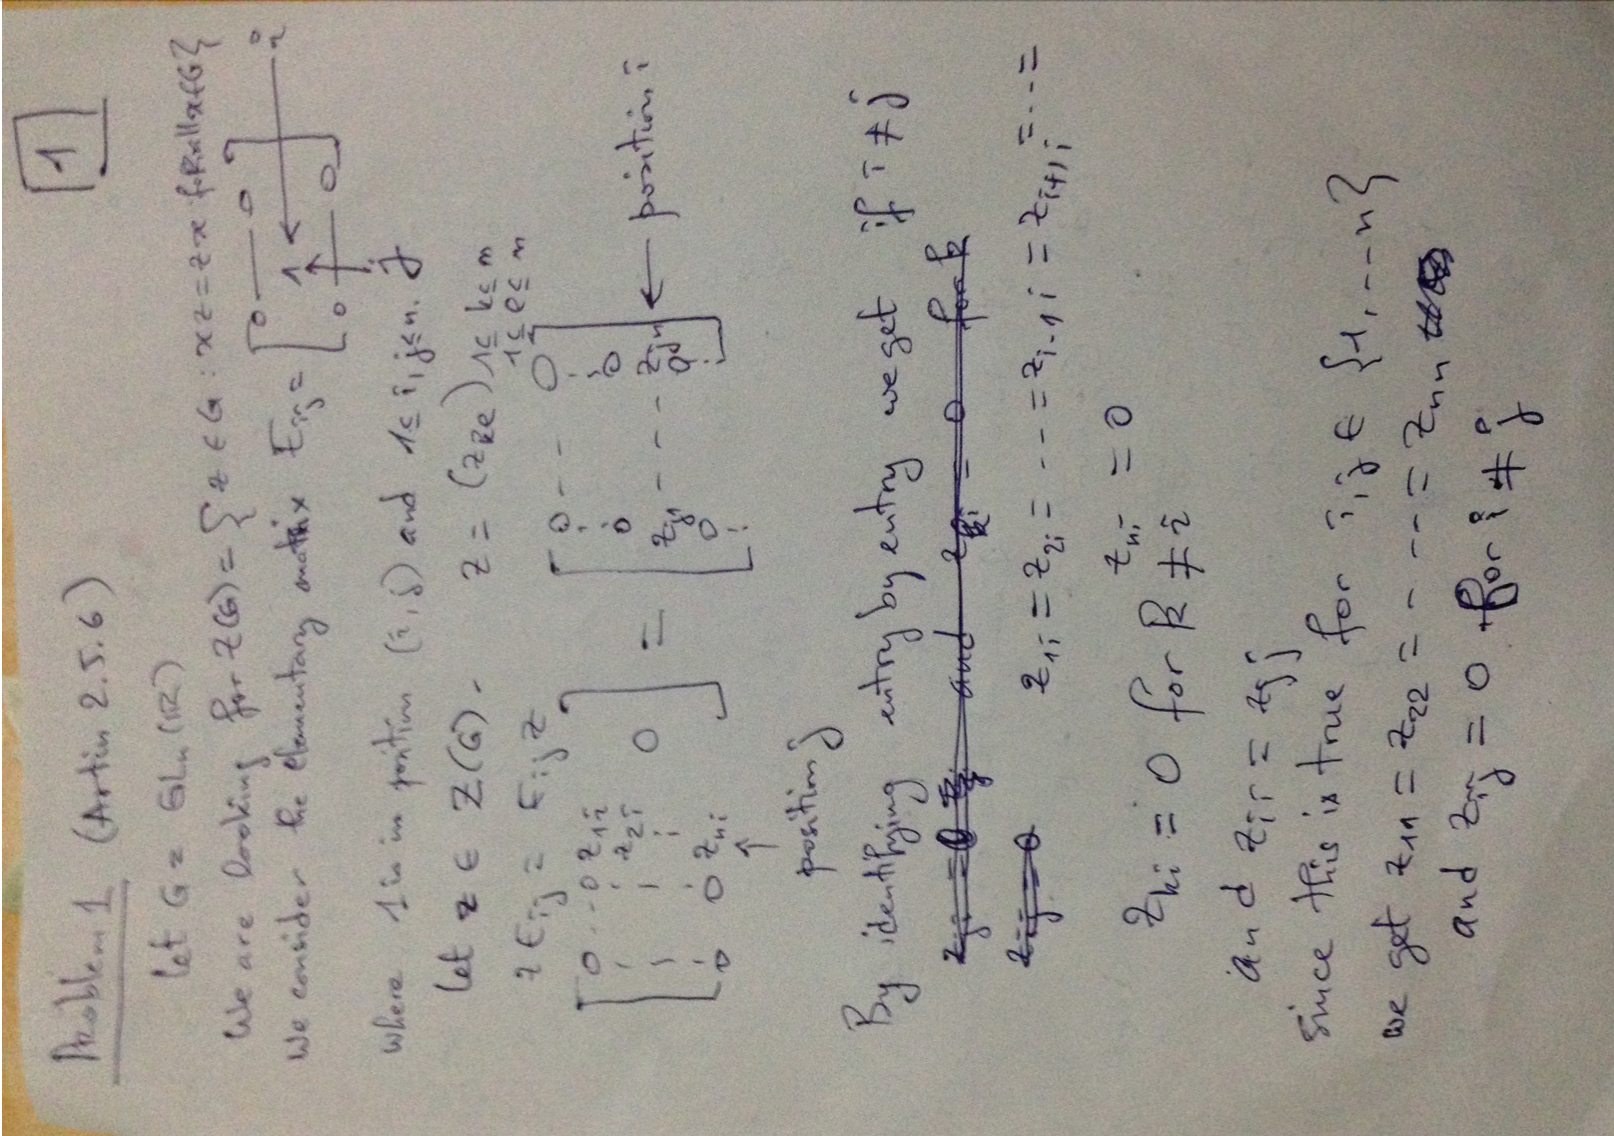 1
Problem 1 (Artin 2.5.6)
Let G = GLn(R)
We are looking for Z(G) = { z ∈ G : xz = zx for all x∈G}
We consider the elementary matrix Eij = [ 0 — 0 1 0 — 0 ] i
j
where 1 is in position (i,j) and 1≤ i,j≤n.
Let z ∈ Z(G). z = (zke) 1≤ k≤ n
1≤ e≤ n
z Eij = Eij z
[ 0 -- 0 z1i 0 ] = [ 0 --- 0 ]
z2i 0 0 ← position i
zj1 --- zjn
0 0 zni 0 0
↑
position j
By identifying entry by entry we get if i ≠ j
z1i = z2i = --- = zi-1 i = zi+1 i = --- =
zni = 0
zki = 0 for k ≠ i
and zii = zjj
Since this is true for i,j ∈ {1, -- n}
we get z11 = z22 = --- = znn
and zij = 0 for i ≠ j